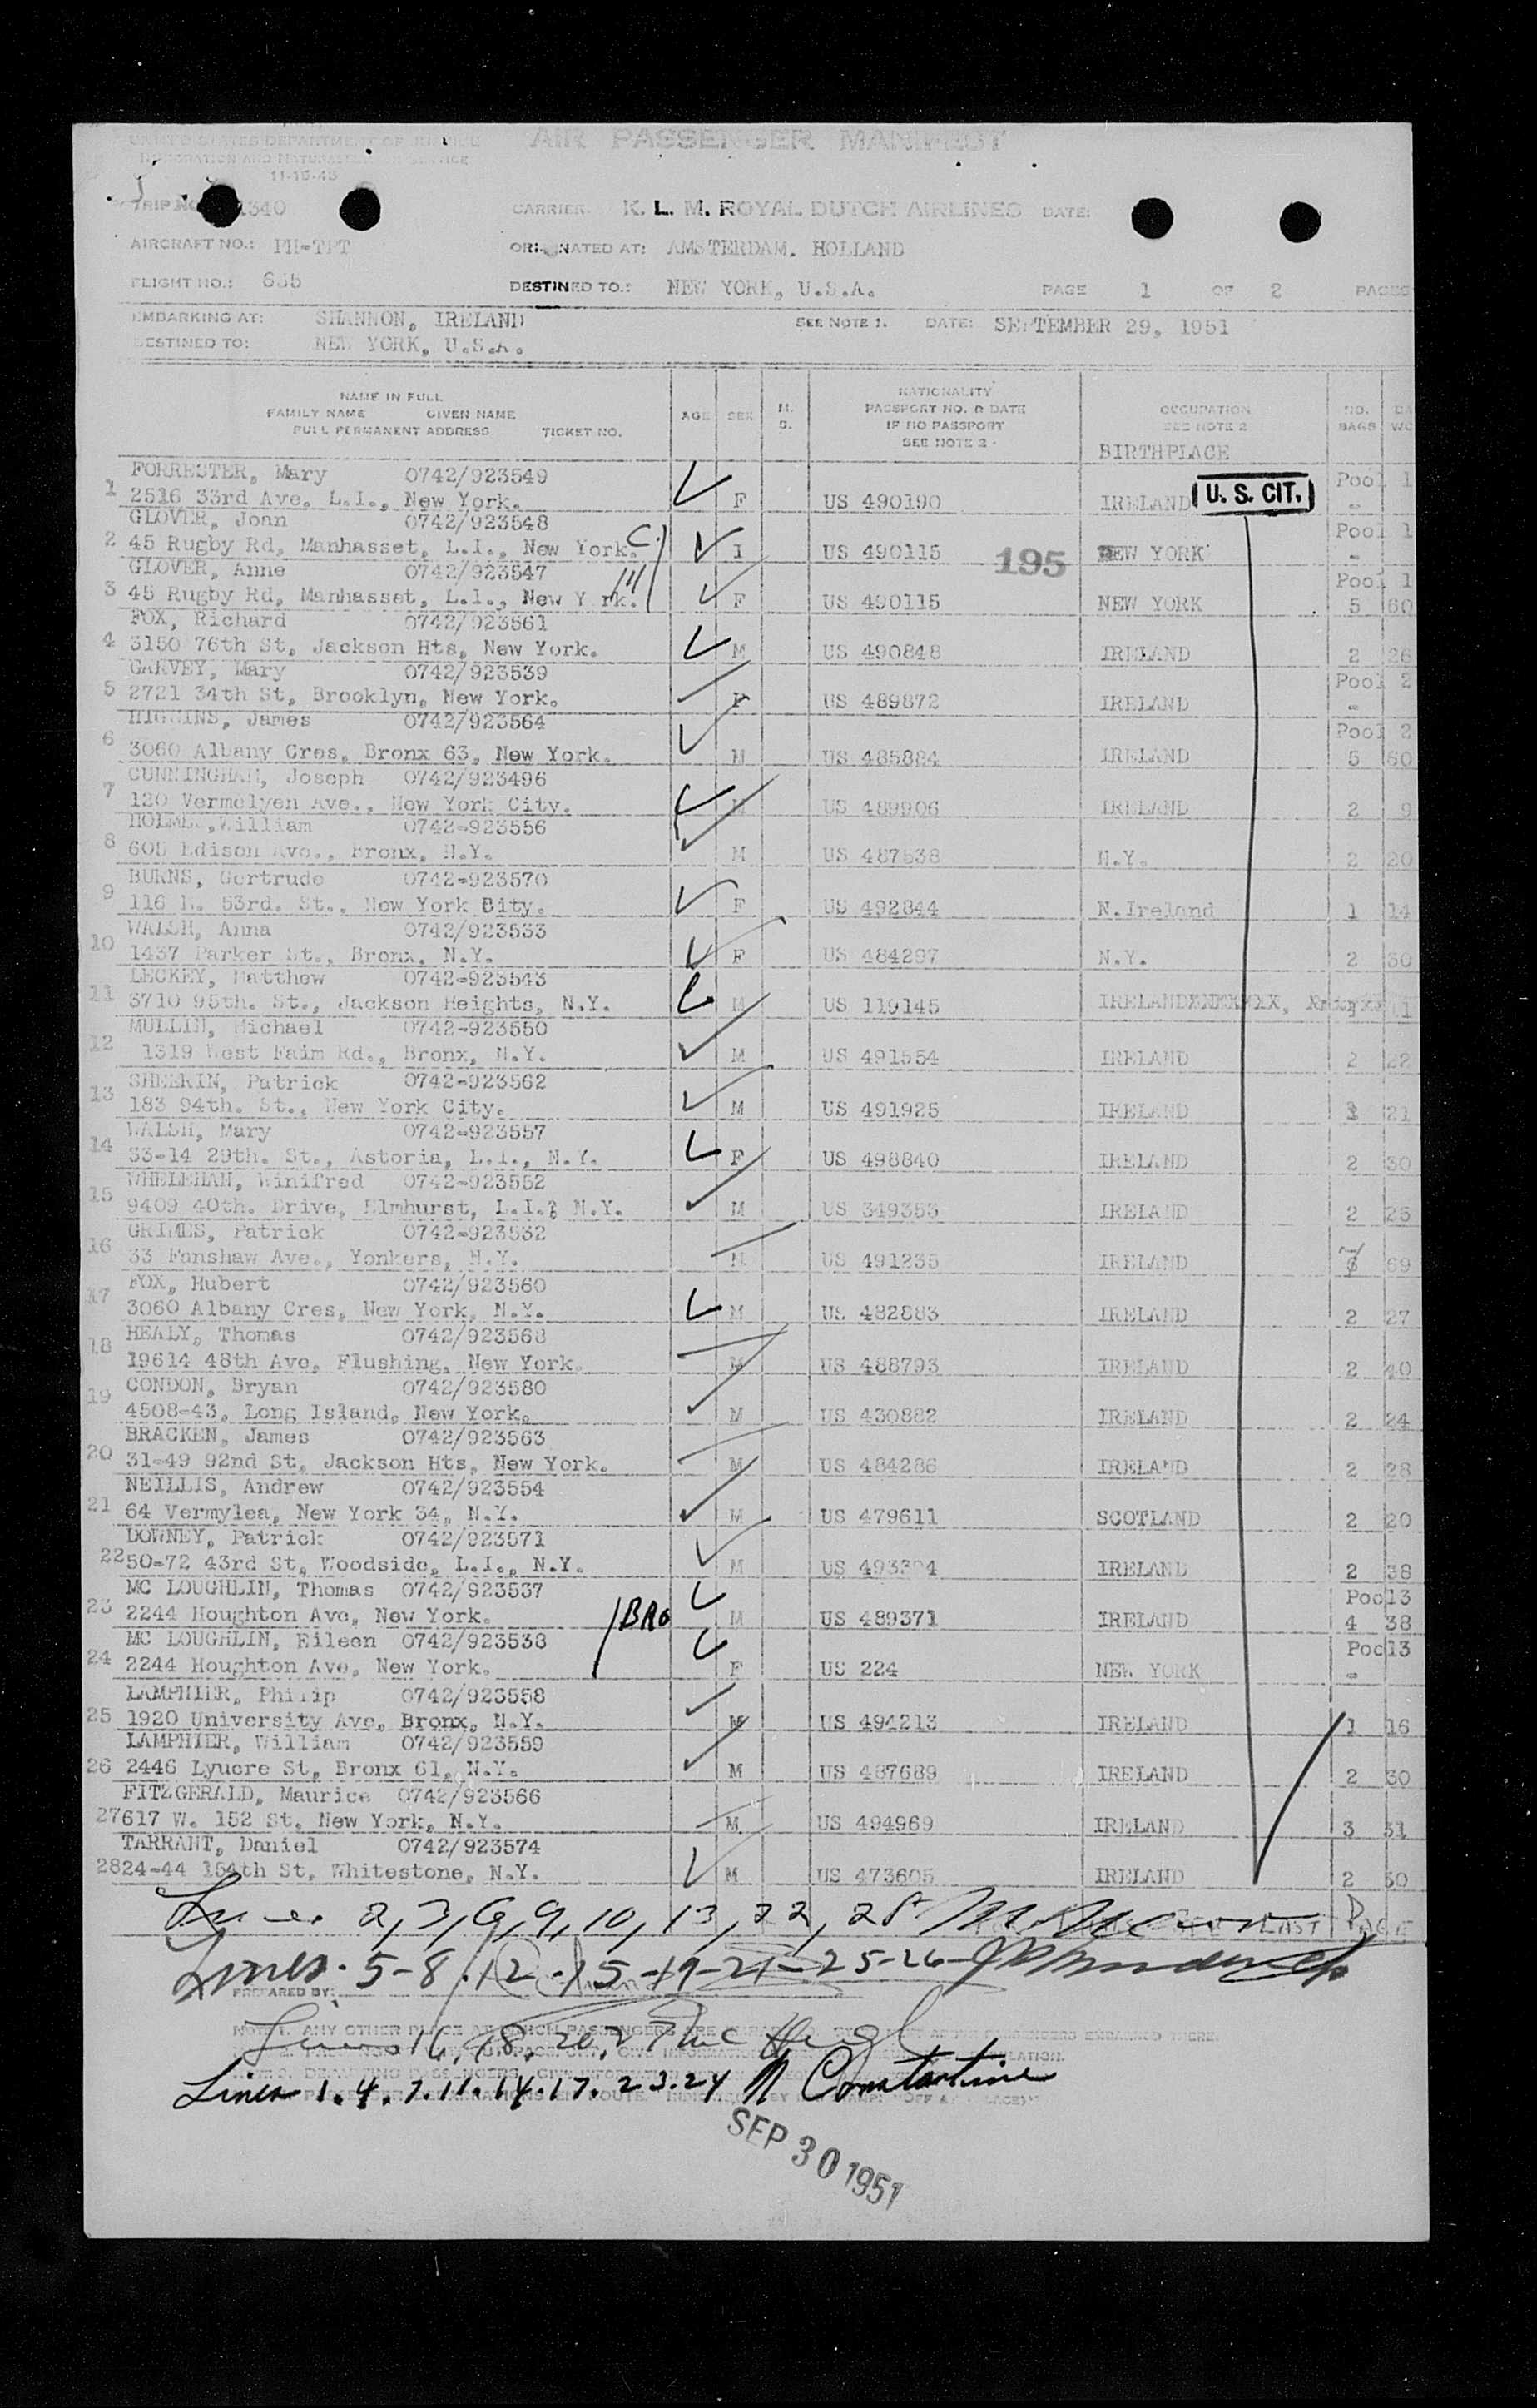 UNITED STATES DEPARTMENT OF JUSTICE
IMMIGRATION AND NATURALIZATION SERVICE
11-15-43
AIR PASSENGER MANIFEST
TRIP NO. 1340 CARRIER: K. L. M. ROYAL DUTCH AIRLINES DATE:
AIRCRAFT NO.: PH-TPT ORIGINATED AT: AMSTERDAM. HOLLAND
FLIGHT NO.: 635 DESTINED TO.: NEW YORK, U.S.A. PAGE 1 OF 2 PAGES
EMBARKING AT: SHANNON, IRELAND SEE NOTE 1. DATE: SEPTEMBER 29, 1951
DESTINED TO: NEW YORK, U.S.A.
NAME IN FULL
FAMILY NAME GIVEN NAME
FULL PERMANENT ADDRESS TICKET NO.
AGE SEX M. S.
NATIONALITY
PASSPORT NO. & DATE
IF NO PASSPORT
SEE NOTE 2
OCCUPATION
SEE NOTE 2
BIRTHPLACE
NO. BAGS
FORRESTER, Mary 0742/923549 Pool 1
1 2516 33rd Ave. L.I., New York. F US 490190 IRELAND U. S. CIT. -
GLOVER, Joan 0742/923548 Pool 1
2 45 Rugby Rd, Manhasset, L.I., New York. I US 490115 195 NEW YORK -
GLOVER, Anne 0742/923547 Pool 1
3 45 Rugby Rd, Manhasset, L.I., New Y rk. F US 490115 NEW YORK 5 60
FOX, Richard 0742/923561
4 3150 76th St, Jackson Hts, New York. M US 490848 IRELAND 2 26
GARVEY, Mary 0742/923539 Pool 2
5 2721 34th St, Brooklyn, New York. F US 489872 IRELAND -
HIGGINS, James 0742/923564 Pool 2
6 3060 Albany Cres, Bronx 63, New York. M US 485884 IRELAND 5 60
CUNNINGHAM, Joseph 0742/923496
7 120 Vermelyen Ave., New York City. M US 489906 IRELAND 2 9
HOLMES, William 0742-923556
8 605 Edison Ave., Bronx, N.Y. M US 487538 N.Y. 2 20
BURNS, Gertrude 0742-923570
9 116 E. 53rd. St., New York Bity. F US 492844 N.Ireland 1 14
WALSH, Anna 0742/923533
10 1437 Parker St., Bronx, N.Y. F US 484297 N.Y. 2 30
LECKEY, Matthew 0742-923543
11 3710 95th. St., Jackson Heights, N.Y. M US 119145 IRELAND
MULLIN, Michael 0742-923550
12 1319 West Faim Rd., Bronx, N.Y. M US 491554 IRELAND 2 22
SHEERIN, Patrick 0742-923562
13 183 94th. St., New York City. M US 491925 IRELAND 21
WALSH, Mary 0742-923557
14 33-14 29th. St., Astoria, L.I., N.Y. F US 498840 IRELAND 2 30
WHELEHAN, Winifred 0742-923552
15 9409 40th. Drive, Elmhurst, L.I.& N.Y. M US 349353 IRELAND 2 25
GRIMES, Patrick 0742-923532
16 33 Fanshaw Ave., Yonkers, N.Y. M US 491235 IRELAND 69
FOX, Hubert 0742/923560
17 3060 Albany Cres, New York, N.Y. M US 482883 IRELAND 2 27
HEALY, Thomas 0742/923568
18 19614 48th Ave, Flushing, New York. M US 488793 IRELAND 2 40
CONDON, Bryan 0742/923580
19 4508-43, Long Island, New York. M US 430882 IRELAND 2 24
BRACKEN, James 0742/923563
20 31-49 92nd St, Jackson Hts, New York. M US 484286 IRELAND 2 28
NEILLIS, Andrew 0742/923554
21 64 Vermylea, New York 34, N.Y. M US 479611 SCOTLAND 2 20
DOWNEY, Patrick 0742/923571
22 50-72 43rd St, Woodside, L.I., N.Y. M US 493394 IRELAND 2 38
MC LOUGHLIN, Thomas 0742/923537 Pool3
23 2244 Houghton Ave, New York. M US 489371 IRELAND 4 38
MC LOUGHLIN, Eileen 0742/923538 Pool3
24 2244 Houghton Ave, New York. F US 224 NEW YORK -
LAMPHIER, Philip 0742/923558
25 1920 University Ave, Bronx, N.Y. M US 494213 IRELAND 1 16
LAMPHIER, William 0742/923559
26 2446 Lyucre St, Bronx 61, N.Y. M US 487689 IRELAND 2 30
FITZGERALD, Maurice 0742/923566
27 617 W. 152 St, New York, N.Y. M US 494969 IRELAND 3 31
TARRANT, Daniel 0742/923574
28 24-44 154th St, Whitestone, N.Y. M US 473605 IRELAND 2 30
Lines 2, 3, 6, 9, 10, 13, 22, 28 LAST PAGE
Lines. 5-8-12-15-19-21-25-26
PREPARED BY:
Lines 16, 18, 20, 27
Lines 1. 4. 7. 11. 14. 17. 23. 24 N Constantine
SEP 30 1951